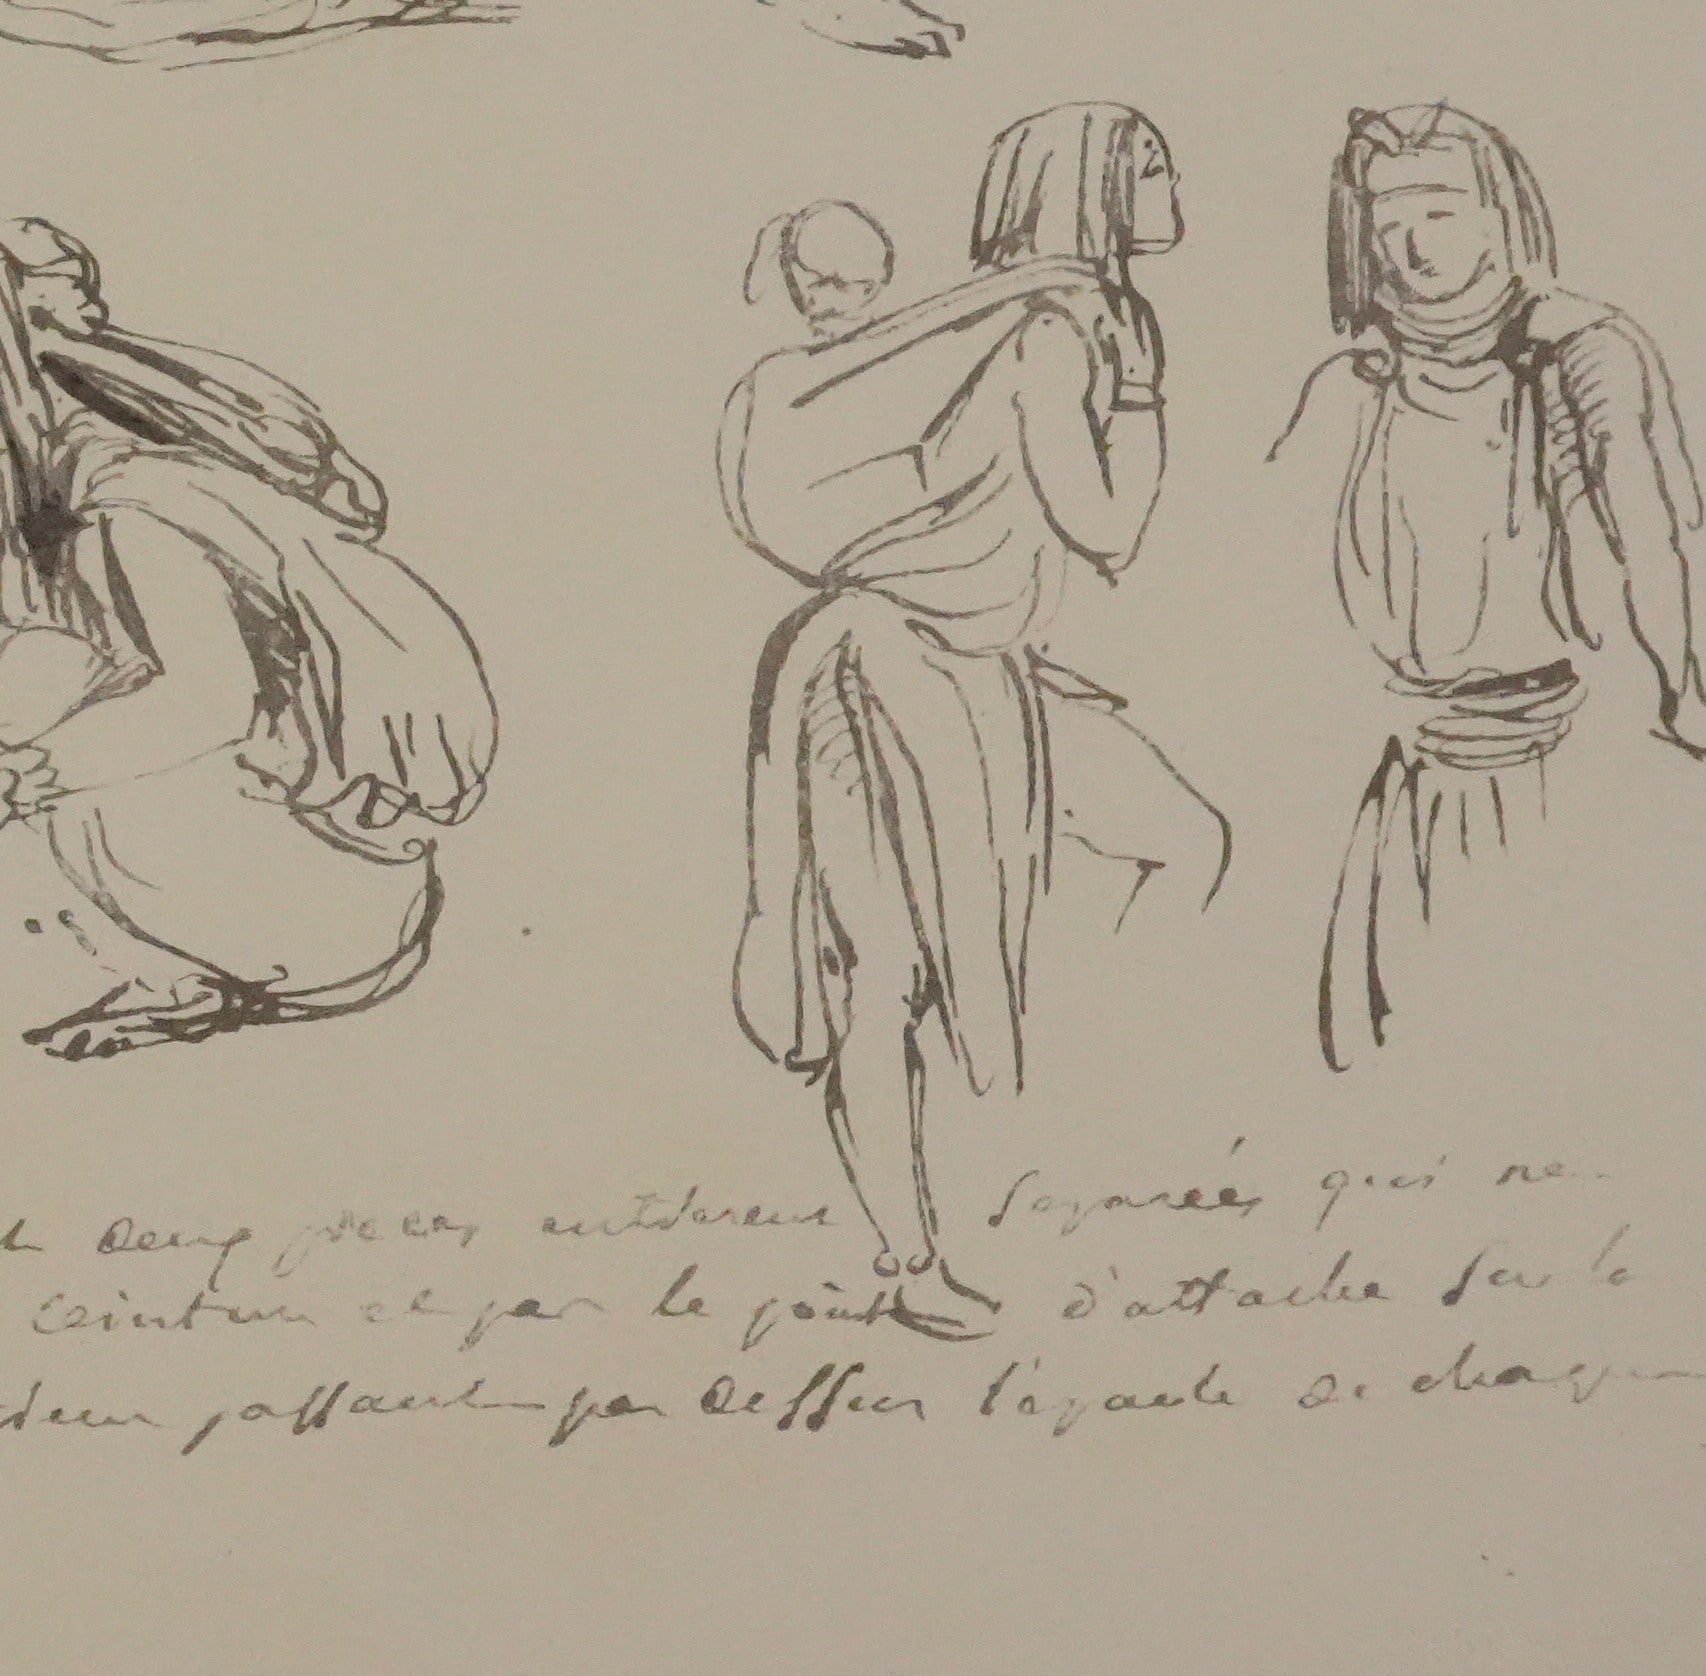 deux pièces entièrement séparées qui ne
ceinture et par le point d'attache sur le
passant par dessus l'épaule de chaque